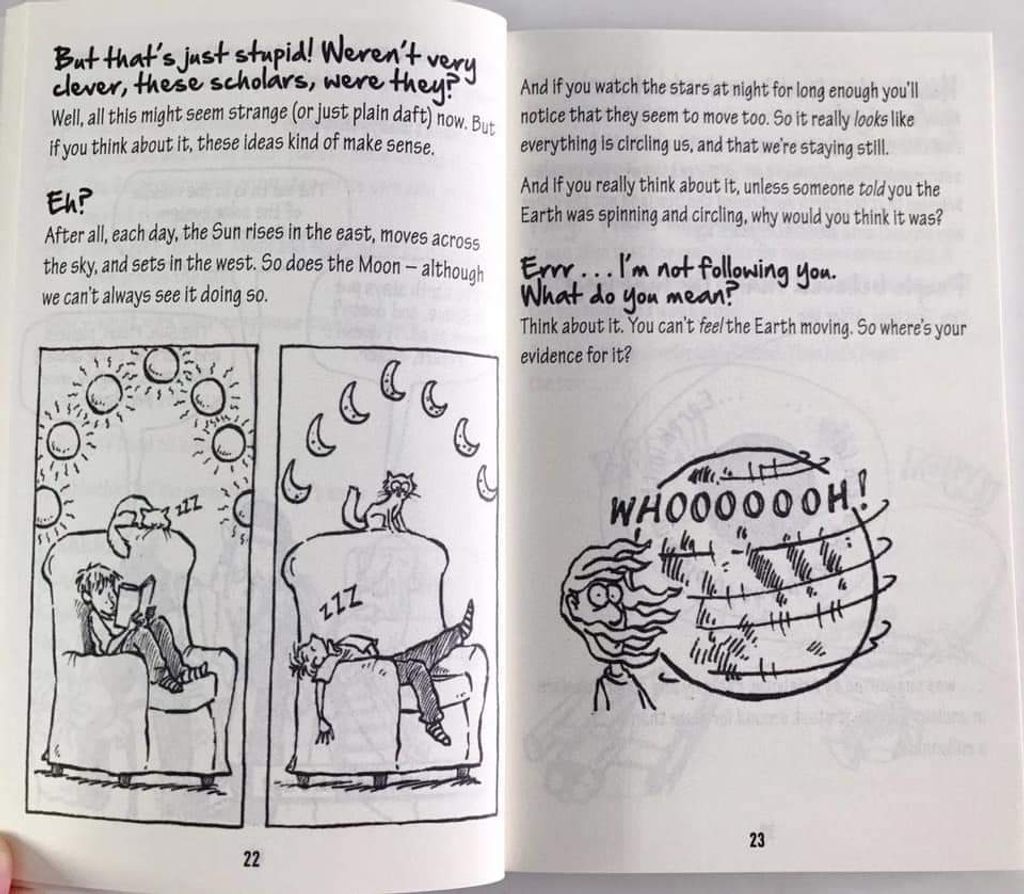 But that's just stupid! Weren't very
clever, these scholars, were they?
Well, all this might seem strange (or just plain daft) now. But
if you think about it, these ideas kind of make sense.
Eh?
After all, each day, the Sun rises in the east, moves across
the sky, and sets in the west. So does the Moon – although
we can't always see it doing so.
zzz
zzz
22
And if you watch the stars at night for long enough you'll
notice that they seem to move too. So it really looks like
everything is circling us, and that we're staying still.
And if you really think about it, unless someone told you the
Earth was spinning and circling, why would you think it was?
Errr... I'm not following you.
What do you mean?
Think about it. You can't feel the Earth moving. So where's your
evidence for it?
WHOOOOOOH!
23